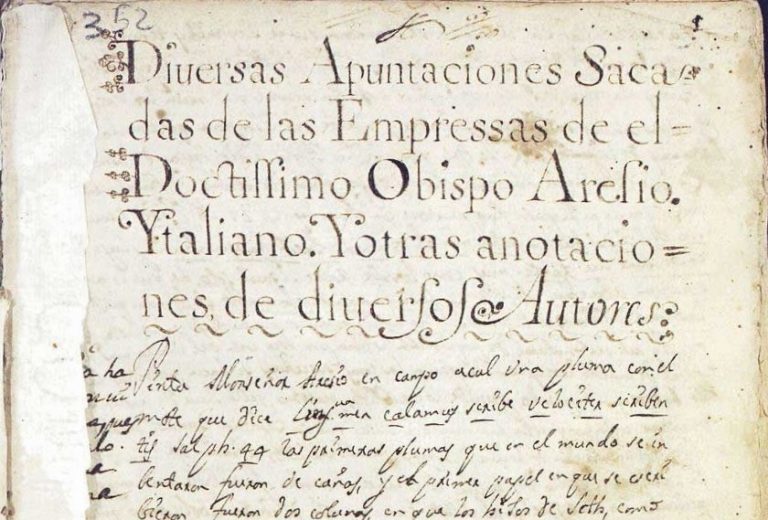 352
1
Diuersas Apuntaciones Saca-
das de las Empressas de el=
Doctissimo Obispo Aresio.
Ytaliano. Y otras anotacio=
nes, de diuersos Autores:
ha Pinta Monseñor Aresio en campo açul vna pluma con el
mote que dice Lingua mea calamus scribe velociter scriben
tis sal ph. 44 las primeras plumas que en el mundo se in
bentaron fueron de cañas, y el primer papel en que se escri
bieron fueron dos colunas, en que los hijos de Seth, como